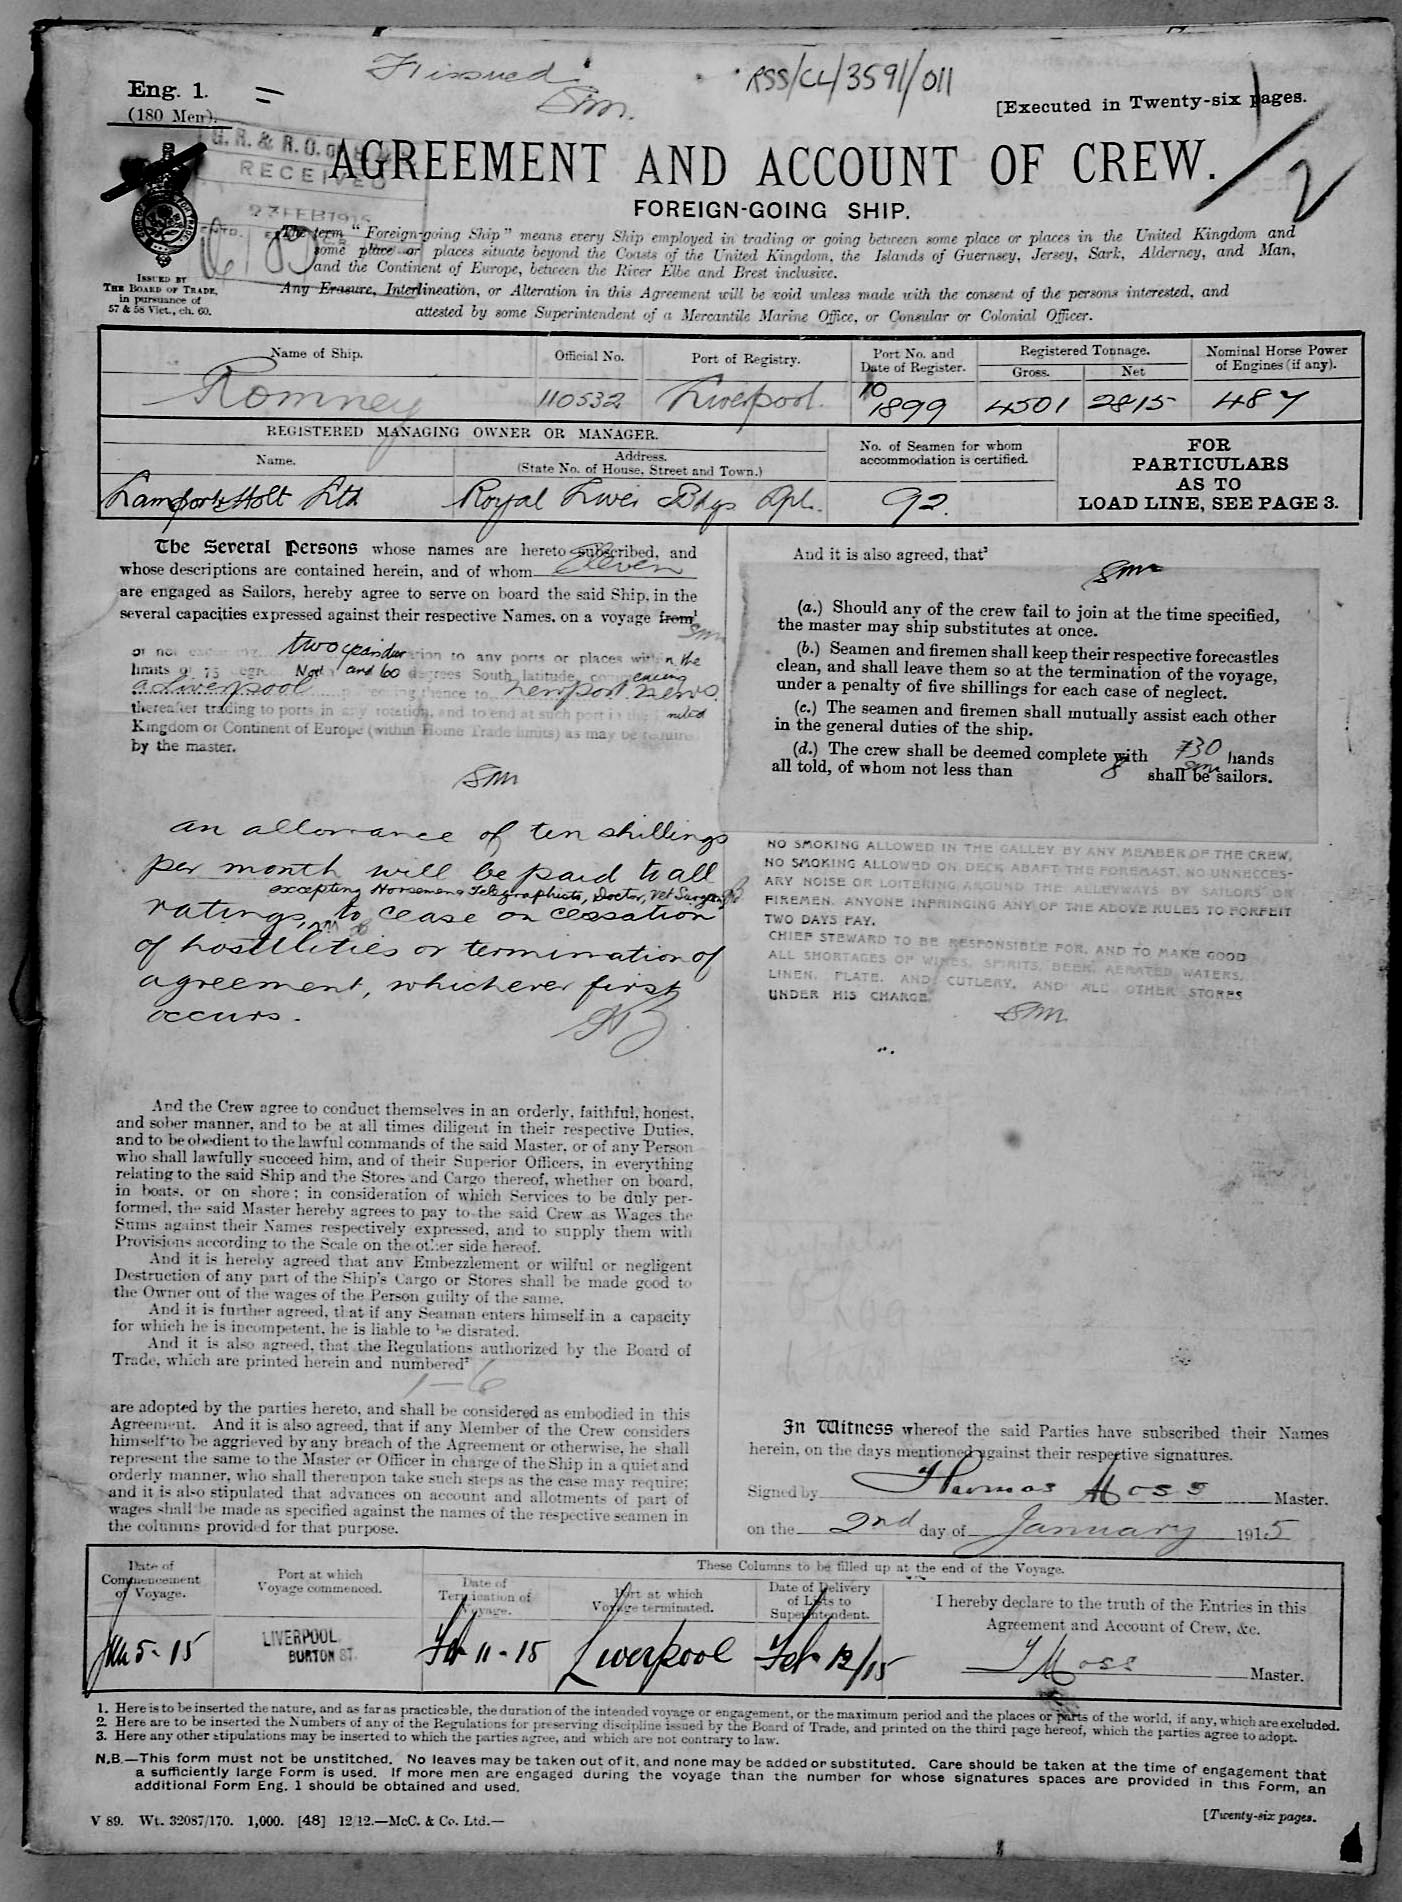 Eng. 1.
(180 Men).
RSS/CL/3591/011
[Executed in Twenty-six pages.
1/2
G. R. & R. O. of S. & S.
RECEIVED
23 FEB 1915
AGREEMENT AND ACCOUNT OF CREW.
FOREIGN-GOING SHIP.
The term "Foreign-going Ship" means every Ship employed in trading or going between some place or places in the United Kingdom and
some place or places situate beyond the Coasts of the United Kingdom, the Islands of Guernsey, Jersey, Sark, Alderney, and Man,
and the Continent of Europe, between the River Elbe and Brest inclusive.
Any Erasure, Interlineation, or Alteration in this Agreement will be void unless made with the consent of the persons interested, and
attested by some Superintendent of a Mercantile Marine Office, or Consular or Colonial Officer.
ISSUED BY
THE BOARD OF TRADE,
in pursuance of
57 & 58 Vict., ch. 60.
Name of Ship. Official No. Port of Registry. Port No. and Date of Register. Registered Tonnage. Gross. Net Nominal Horse Power of Engines (if any).
Romney 110532 Liverpool. 10 1899 4501 2815 487
REGISTERED MANAGING OWNER OR MANAGER.
Name. Address. (State No. of House, Street and Town.) No. of Seamen for whom accommodation is certified.
Lamport & Holt Ltd Royal Liver Bdgs Lpl. 92.
FOR
PARTICULARS
AS TO
LOAD LINE, SEE PAGE 3.
The Several Persons whose names are hereto subscribed, and
whose descriptions are contained herein, and of whom Eleven
are engaged as Sailors, hereby agree to serve on board the said Ship, in the
several capacities expressed against their respective Names, on a voyage from¹
two years duration to any ports or places within the
limits of 75 degrees North and 60 degrees South latitude, commencing
at Liverpool proceeding thence to Newport News.
thereafter trading to ports in any rotation, and to end at such port in the United
Kingdom or Continent of Europe (within Home Trade limits) as may be required
by the master.
SM
an allowance of ten shillings
per month will be paid to all
excepting Horsemen & Telegraphists, Doctor, Vet Surgeon
ratings, to cease on cessation
of hostilities or termination of
agreement, whichever first
occurs.
And the Crew agree to conduct themselves in an orderly, faithful, honest,
and sober manner, and to be at all times diligent in their respective Duties,
and to be obedient to the lawful commands of the said Master, or of any Person
who shall lawfully succeed him, and of their Superior Officers, in everything
relating to the said Ship and the Stores and Cargo thereof, whether on board,
in boats, or on shore; in consideration of which Services to be duly per-
formed, the said Master hereby agrees to pay to the said Crew as Wages the
Sums against their Names respectively expressed, and to supply them with
Provisions according to the Scale on the other side hereof.
And it is hereby agreed that any Embezzlement or wilful or negligent
Destruction of any part of the Ship's Cargo or Stores shall be made good to
the Owner out of the wages of the Person guilty of the same.
And it is further agreed, that if any Seaman enters himself in a capacity
for which he is incompetent, he is liable to be disrated.
And it is also agreed, that the Regulations authorized by the Board of
Trade, which are printed herein and numbered²
1-6
are adopted by the parties hereto, and shall be considered as embodied in this
Agreement. And it is also agreed, that if any Member of the Crew considers
himself to be aggrieved by any breach of the Agreement or otherwise, he shall
represent the same to the Master or Officer in charge of the Ship in a quiet and
orderly manner, who shall thereupon take such steps as the case may require;
and it is also stipulated that advances on account and allotments of part of
wages shall be made as specified against the names of the respective seamen in
the columns provided for that purpose.
And it is also agreed, that³
SM
(a.) Should any of the crew fail to join at the time specified,
the master may ship substitutes at once.
(b.) Seamen and firemen shall keep their respective forecastles
clean, and shall leave them so at the termination of the voyage,
under a penalty of five shillings for each case of neglect.
(c.) The seamen and firemen shall mutually assist each other
in the general duties of the ship.
(d.) The crew shall be deemed complete with 30 hands
all told, of whom not less than 8 shall be sailors.
NO SMOKING ALLOWED IN THE GALLEY BY ANY MEMBER OF THE CREW,
NO SMOKING ALLOWED ON DECK ABAFT THE FOREMAST, NO UNNECCES-
ARY NOISE OR LOITERING AROUND THE ALLEYWAYS BY SAILORS OR
FIREMEN. ANYONE INFRINGING ANY OF THE ABOVE RULES TO FORFEIT
TWO DAYS PAY.
CHIEF STEWARD TO BE RESPONSIBLE FOR, AND TO MAKE GOOD
ALL SHORTAGES OF WINES, SPIRITS, BEER, AERATED WATERS,
LINEN, PLATE, AND CUTLERY, AND ALL OTHER STORES
UNDER HIS CHARGE.
SM
In Witness whereof the said Parties have subscribed their Names
herein, on the days mentioned against their respective signatures.
Signed by Thomas Moss Master.
on the 2nd day of January 1915
Date of Commencement of Voyage. Port at which Voyage commenced. These Columns to be filled up at the end of the Voyage.
Date of Termination of Voyage. Port at which Voyage terminated. Date of Delivery of Lists to Superintendent. I hereby declare to the truth of the Entries in this
Agreement and Account of Crew, &c.
Jan 5-15 LIVERPOOL BURTON ST. Feb 11-15 Liverpool Feb 12/15 T Moss Master.
1. Here is to be inserted the nature, and as far as practicable, the duration of the intended voyage or engagement, or the maximum period and the places or parts of the world, if any, which are excluded.
2. Here are to be inserted the Numbers of any of the Regulations for preserving discipline issued by the Board of Trade, and printed on the third page hereof, which the parties agree to adopt.
3. Here any other stipulations may be inserted to which the parties agree, and which are not contrary to law.
N.B.—This form must not be unstitched. No leaves may be taken out of it, and none may be added or substituted. Care should be taken at the time of engagement that
a sufficiently large Form is used. If more men are engaged during the voyage than the number for whose signatures spaces are provided in this Form, an
additional Form Eng. 1 should be obtained and used.
V 89. Wt. 32087/170. 1,000. [48] 12/12.—McC. & Co. Ltd.—
[Twenty-six pages.